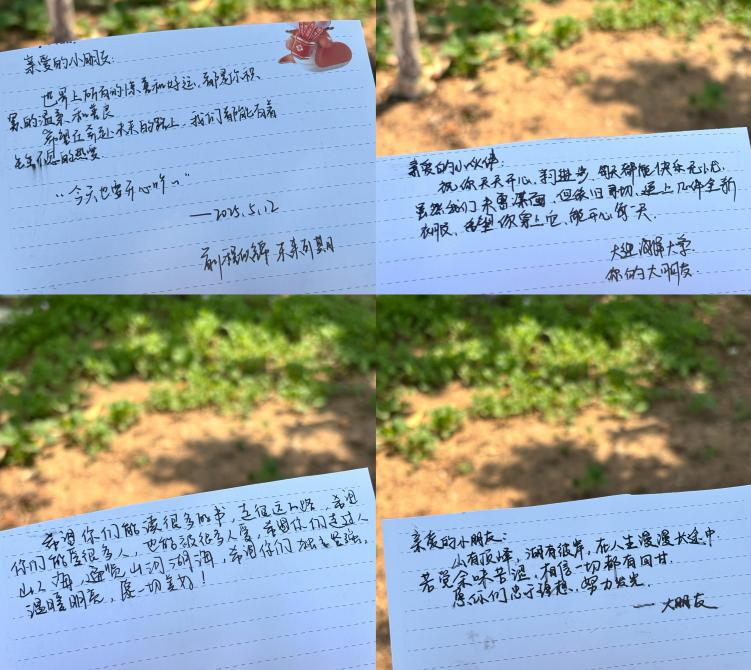 亲爱的小朋友：
世界上所有的惊喜和好运，都是你积
累的温章和善良
希望在奔赴未来的路上，我们都能有着
生生不息的热爱
“今天也要开心吖~”
——2025.5.12
前程似锦 未来可期
亲爱的小伙伴：
祝你天天开心，科进步，每天都能快乐无忧。
虽然我们未曾谋面，但依旧寻切，送上几件全新
衣服，希望你穿上它，能开心每一天
大连海洋大学
你的大朋友
希望你们能读很多的书，走很远的路，希望
你们能爱很多人，也能被很多人爱，希望你们走过人
山人海，遍览山河湖海，希望你们独立坚强，
温暖明亮，愿一切美好！
亲爱的小朋友：
山有顶峰，湖有彼岸，在人生漫漫长途中
若觉余味苦涩，相信一切都有回甘
愿你们忠于理想，努力发光
——大朋友